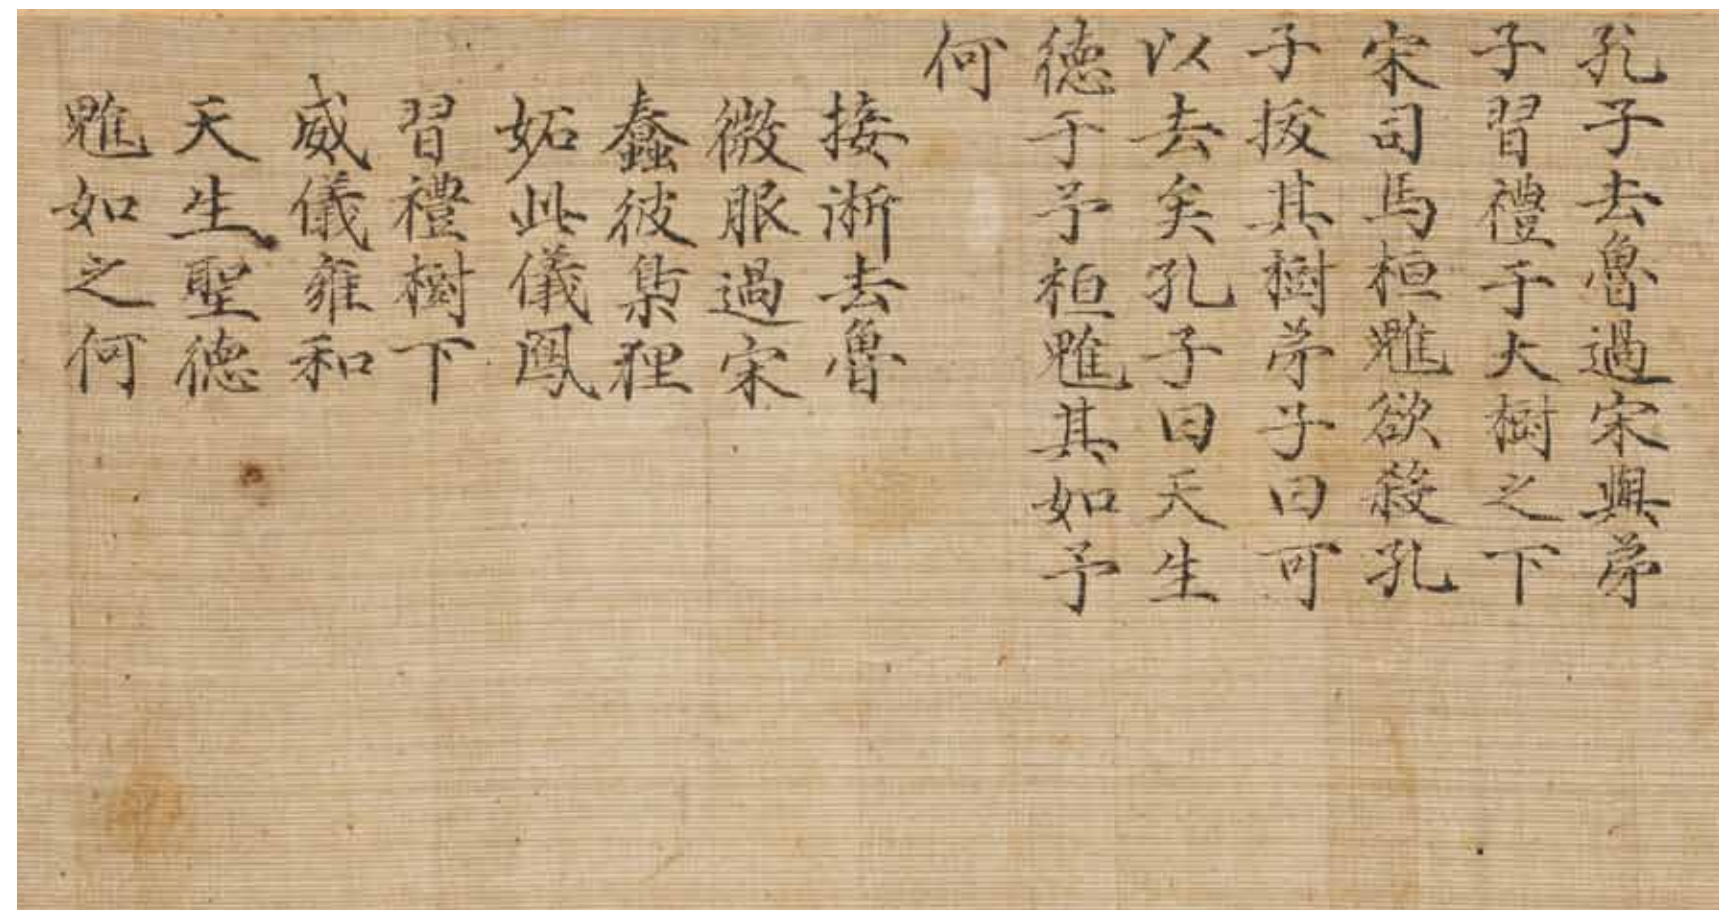 孔子去魯過宋與弟
子習禮于大樹之下
宋司馬桓魋欲殺孔
子拔其樹弟子曰可
以去矣孔子曰天生
德于予桓魋其如予
何
接淅去魯
微服過宋
蠢彼梟狸
妬此儀鳳
習禮樹下
威儀雍和
天生聖德
魋如之何